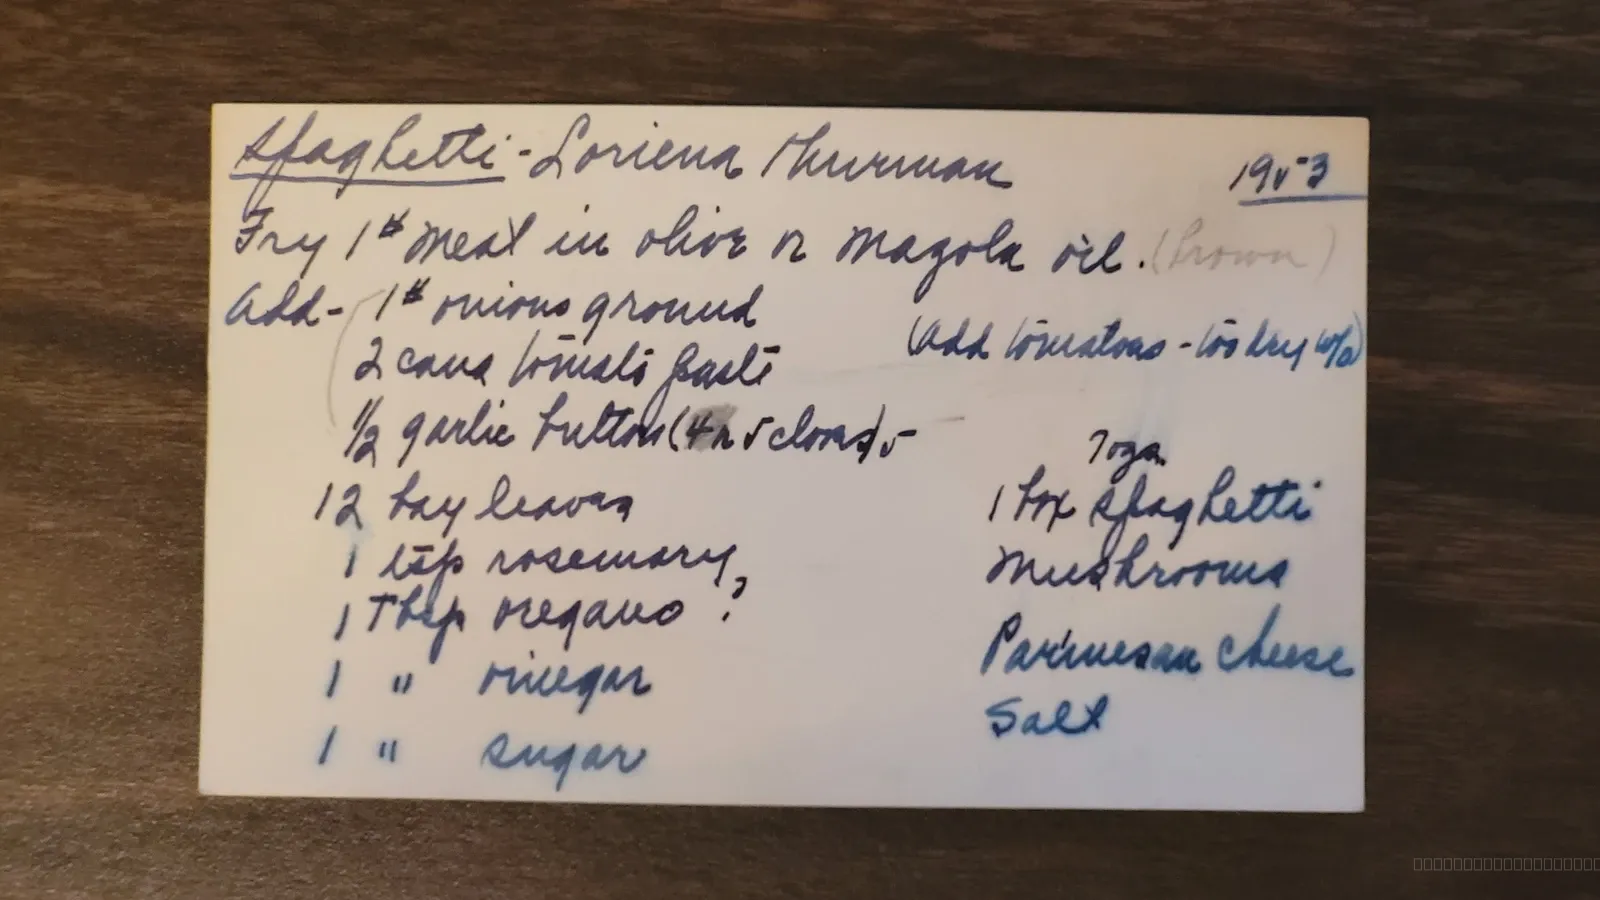 Spaghetti - Loriena Thurman
1953
Fry 1# meat in olive or Mazola oil. (brown)
Add - 1# onions ground
(Add tomatoes - too dry w/o)
2 cans tomato paste
1/2 garlic button (4 or 5 cloves) 5
12 bay leaves
1 tsp rosemary
1 Tbsp oregano ?
1 " vinegar
1 " sugar
7 oga.
1 box spaghetti
Mushrooms
Parmesan cheese
Salt